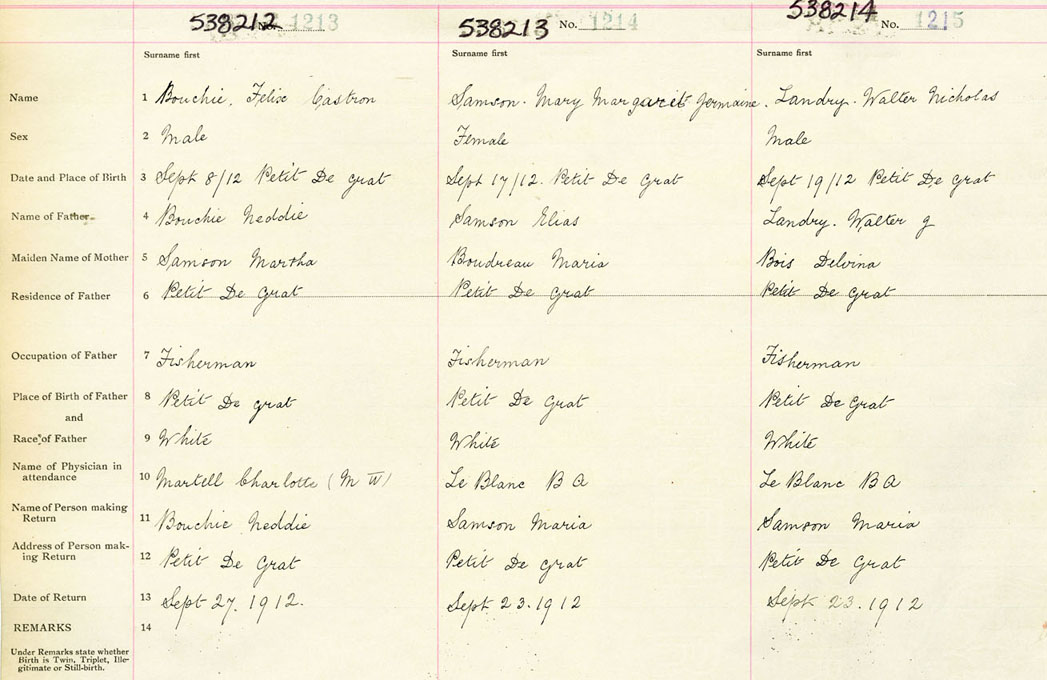 538212 No. 1213 538213 No. 1214 538214 No. 1215
Surname first Surname first Surname first
Name 1 Bouchie. Felix Castron Samson. Mary Margaret Germaine. Landry. Walter Nicholas
Sex 2 Male Female Male
Date and Place of Birth 3 Sept 8/12 Petit De Grat Sept 17/12. Petit De Grat Sept 19/12 Petit De Grat
Name of Father 4 Bouchie Neddie Samson Elias Landry. Walter G
Maiden Name of Mother 5 Samson Martha Boudreau Maria Bois Delvina
Residence of Father 6 Petit De Grat Petit De Grat Petit De Grat
Occupation of Father 7 Fisherman Fisherman Fisherman
Place of Birth of Father 8 Petit De Grat Petit De Grat Petit De Grat
and
Race of Father 9 White White White
Name of Physician in
attendance 10 Martell Charlotte (M W) Le Blanc B A Le Blanc B A
Name of Person making
Return 11 Bouchie Neddie Samson Maria Samson Maria
Address of Person mak-
ing Return 12 Petit De Grat Petit De Grat Petit De Grat
Date of Return 13 Sept 27. 1912. Sept 23. 1912 Sept 23. 1912
REMARKS 14
Under Remarks state whether
Birth is Twin, Triplet, Ille-
gitimate or Still-birth.